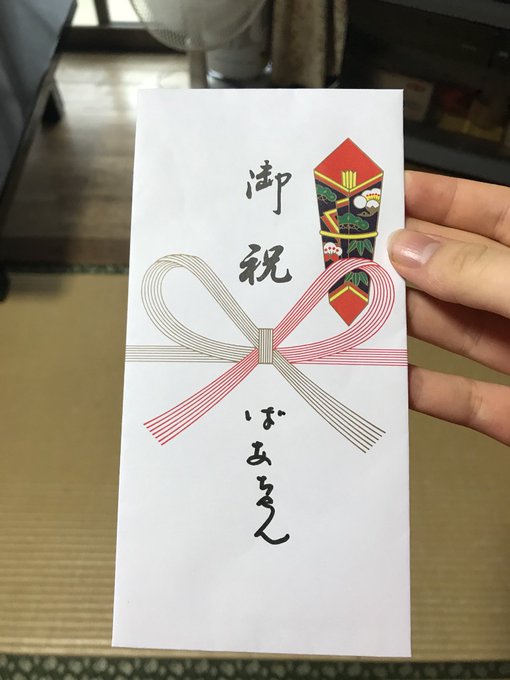 御祝
ばあちゃん